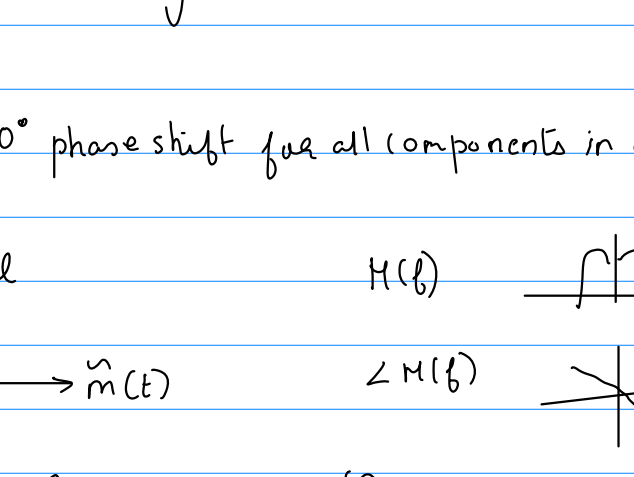 0° phase shift for all components in
l M(f)
→ m̃(t) ∠M(f)